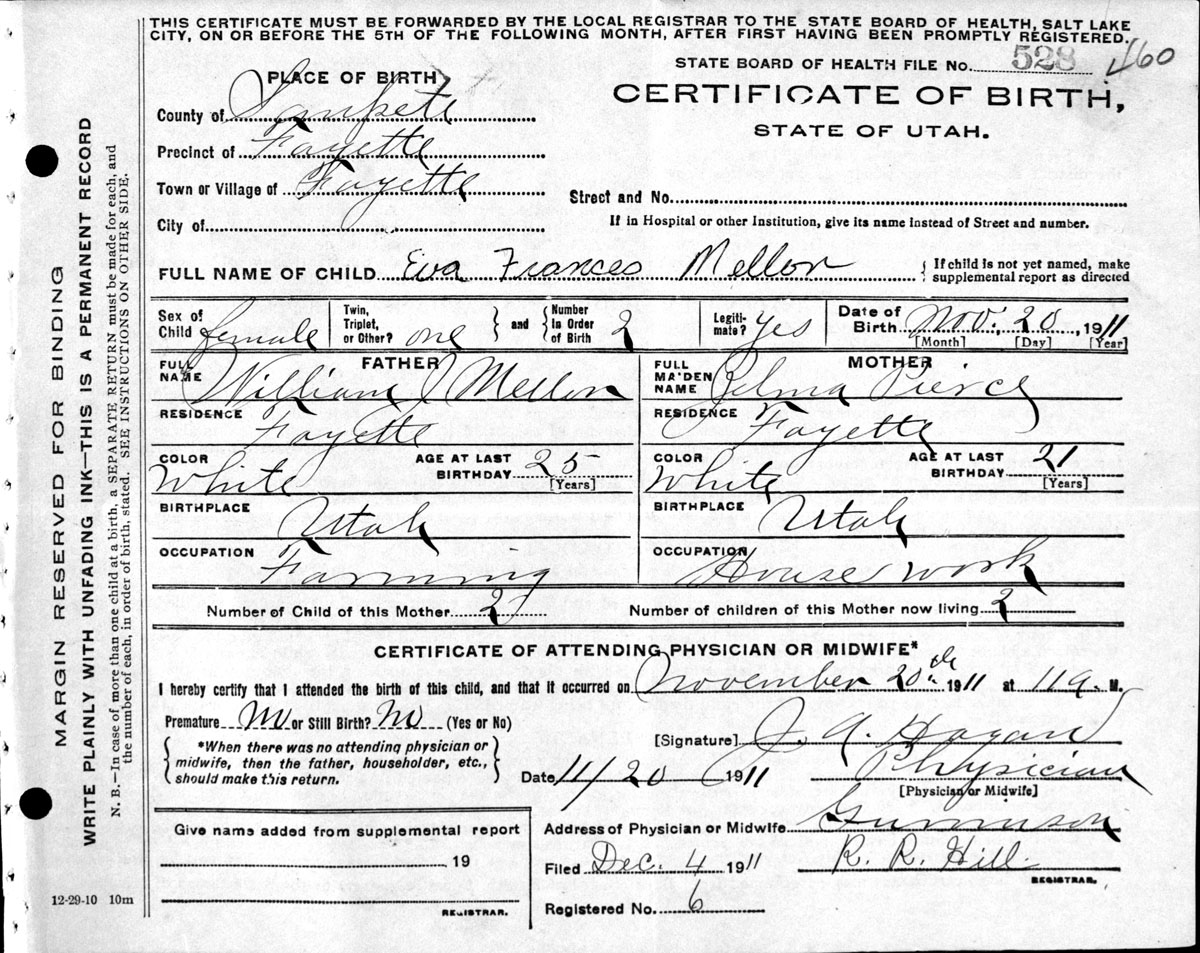 THIS CERTIFICATE MUST BE FORWARDED BY THE LOCAL REGISTRAR TO THE STATE BOARD OF HEALTH, SALT LAKE
CITY, ON OR BEFORE THE 5TH OF THE FOLLOWING MONTH, AFTER FIRST HAVING BEEN PROMPTLY REGISTERED.
STATE BOARD OF HEALTH FILE No. 528 460
PLACE OF BIRTH
CERTIFICATE OF BIRTH,
STATE OF UTAH.
County of Sanpete
Precinct of Fayette
Town or Village of Fayette
Street and No.
City of
If in Hospital or other Institution, give its name instead of Street and number.
FULL NAME OF CHILD Eva Frances Mellor { If child is not yet named, make
supplemental report as directed
Sex of Child female Twin, Triplet, or Other? one } and { Number In Order of Birth 2 Legiti-mate? yes Date of Birth Nov. 20, 1911
[Month] [Day] [Year]
FATHER MOTHER
FULL NAME William J Mellor FULL MAIDEN NAME Zelma Pierce
RESIDENCE Fayette RESIDENCE Fayette
COLOR White AGE AT LAST BIRTHDAY 25 [Years] COLOR White AGE AT LAST BIRTHDAY 21 [Years]
BIRTHPLACE Utah BIRTHPLACE Utah
OCCUPATION Farming OCCUPATION House work
Number of Child of this Mother 2 Number of children of this Mother now living 2
CERTIFICATE OF ATTENDING PHYSICIAN OR MIDWIFE*
I hereby certify that I attended the birth of this child, and that it occurred on November 20th 1911 at 11 a. M.
Premature No or Still Birth? No (Yes or No)
{ *When there was no attending physician or
midwife, then the father, householder, etc.,
should make this return. }
[Signature] J. A. Hagan
Date 11/20 1911 Physician
[Physician or Midwife]
Give name added from supplemental report
19
REGISTRAR.
Address of Physician or Midwife Gunnison
Filed Dec. 4 1911 R. R. Hill
REGISTRAR.
Registered No. 6
12-29-10 10m
MARGIN RESERVED FOR BINDING
WRITE PLAINLY WITH UNFADING INK—THIS IS A PERMANENT RECORD
N. B.—In case of more than one child at a birth, a SEPARATE RETURN must be made for each, and
the number of each, in order of birth, stated. SEE INSTRUCTIONS ON OTHER SIDE.